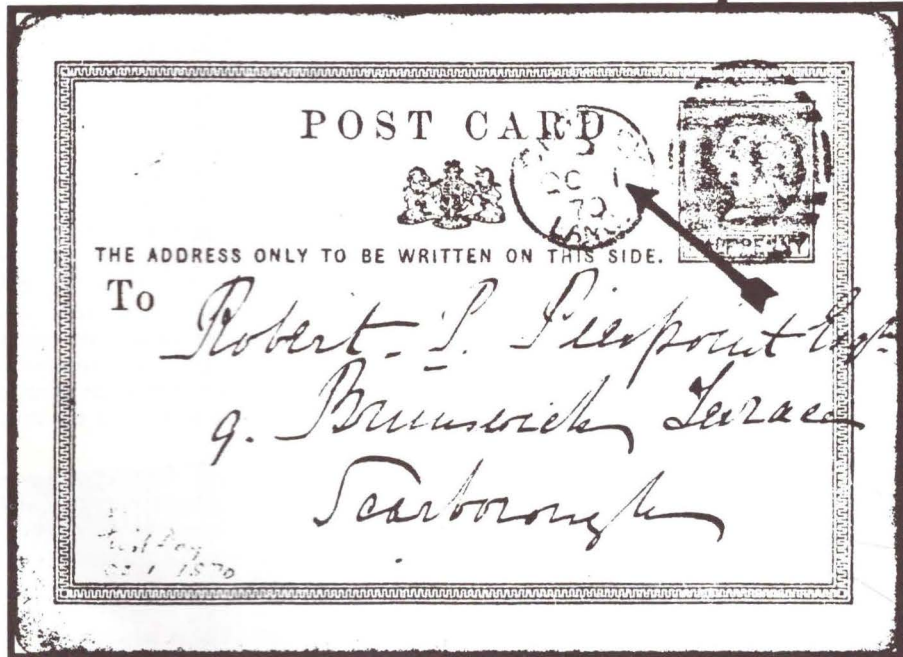 POST CARD
OC 1
70
HALFPENNY
THE ADDRESS ONLY TO BE WRITTEN ON THIS SIDE.
To
Robert. P. Pierpoint Esqre
9. Brunswick Terrace
Scarborough
First Day
Oc 1 1870